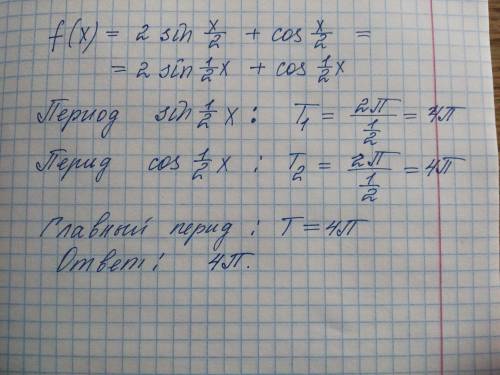 f(x) = 2 sin x/2 + cos x/2 =
= 2 sin 1/2 x + cos 1/2 x
Период sin 1/2 x : T₁ = 2π / 1/2 = 4π
Перид cos 1/2 x : T₂ = 2π / 1/2 = 4π
Главный перид : T = 4π
Ответ : 4π.